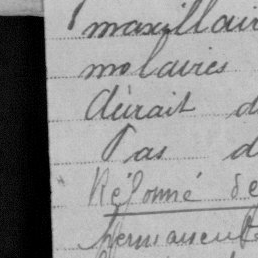 maxillair
molaires
d
Pas d
Réformé de
permanente